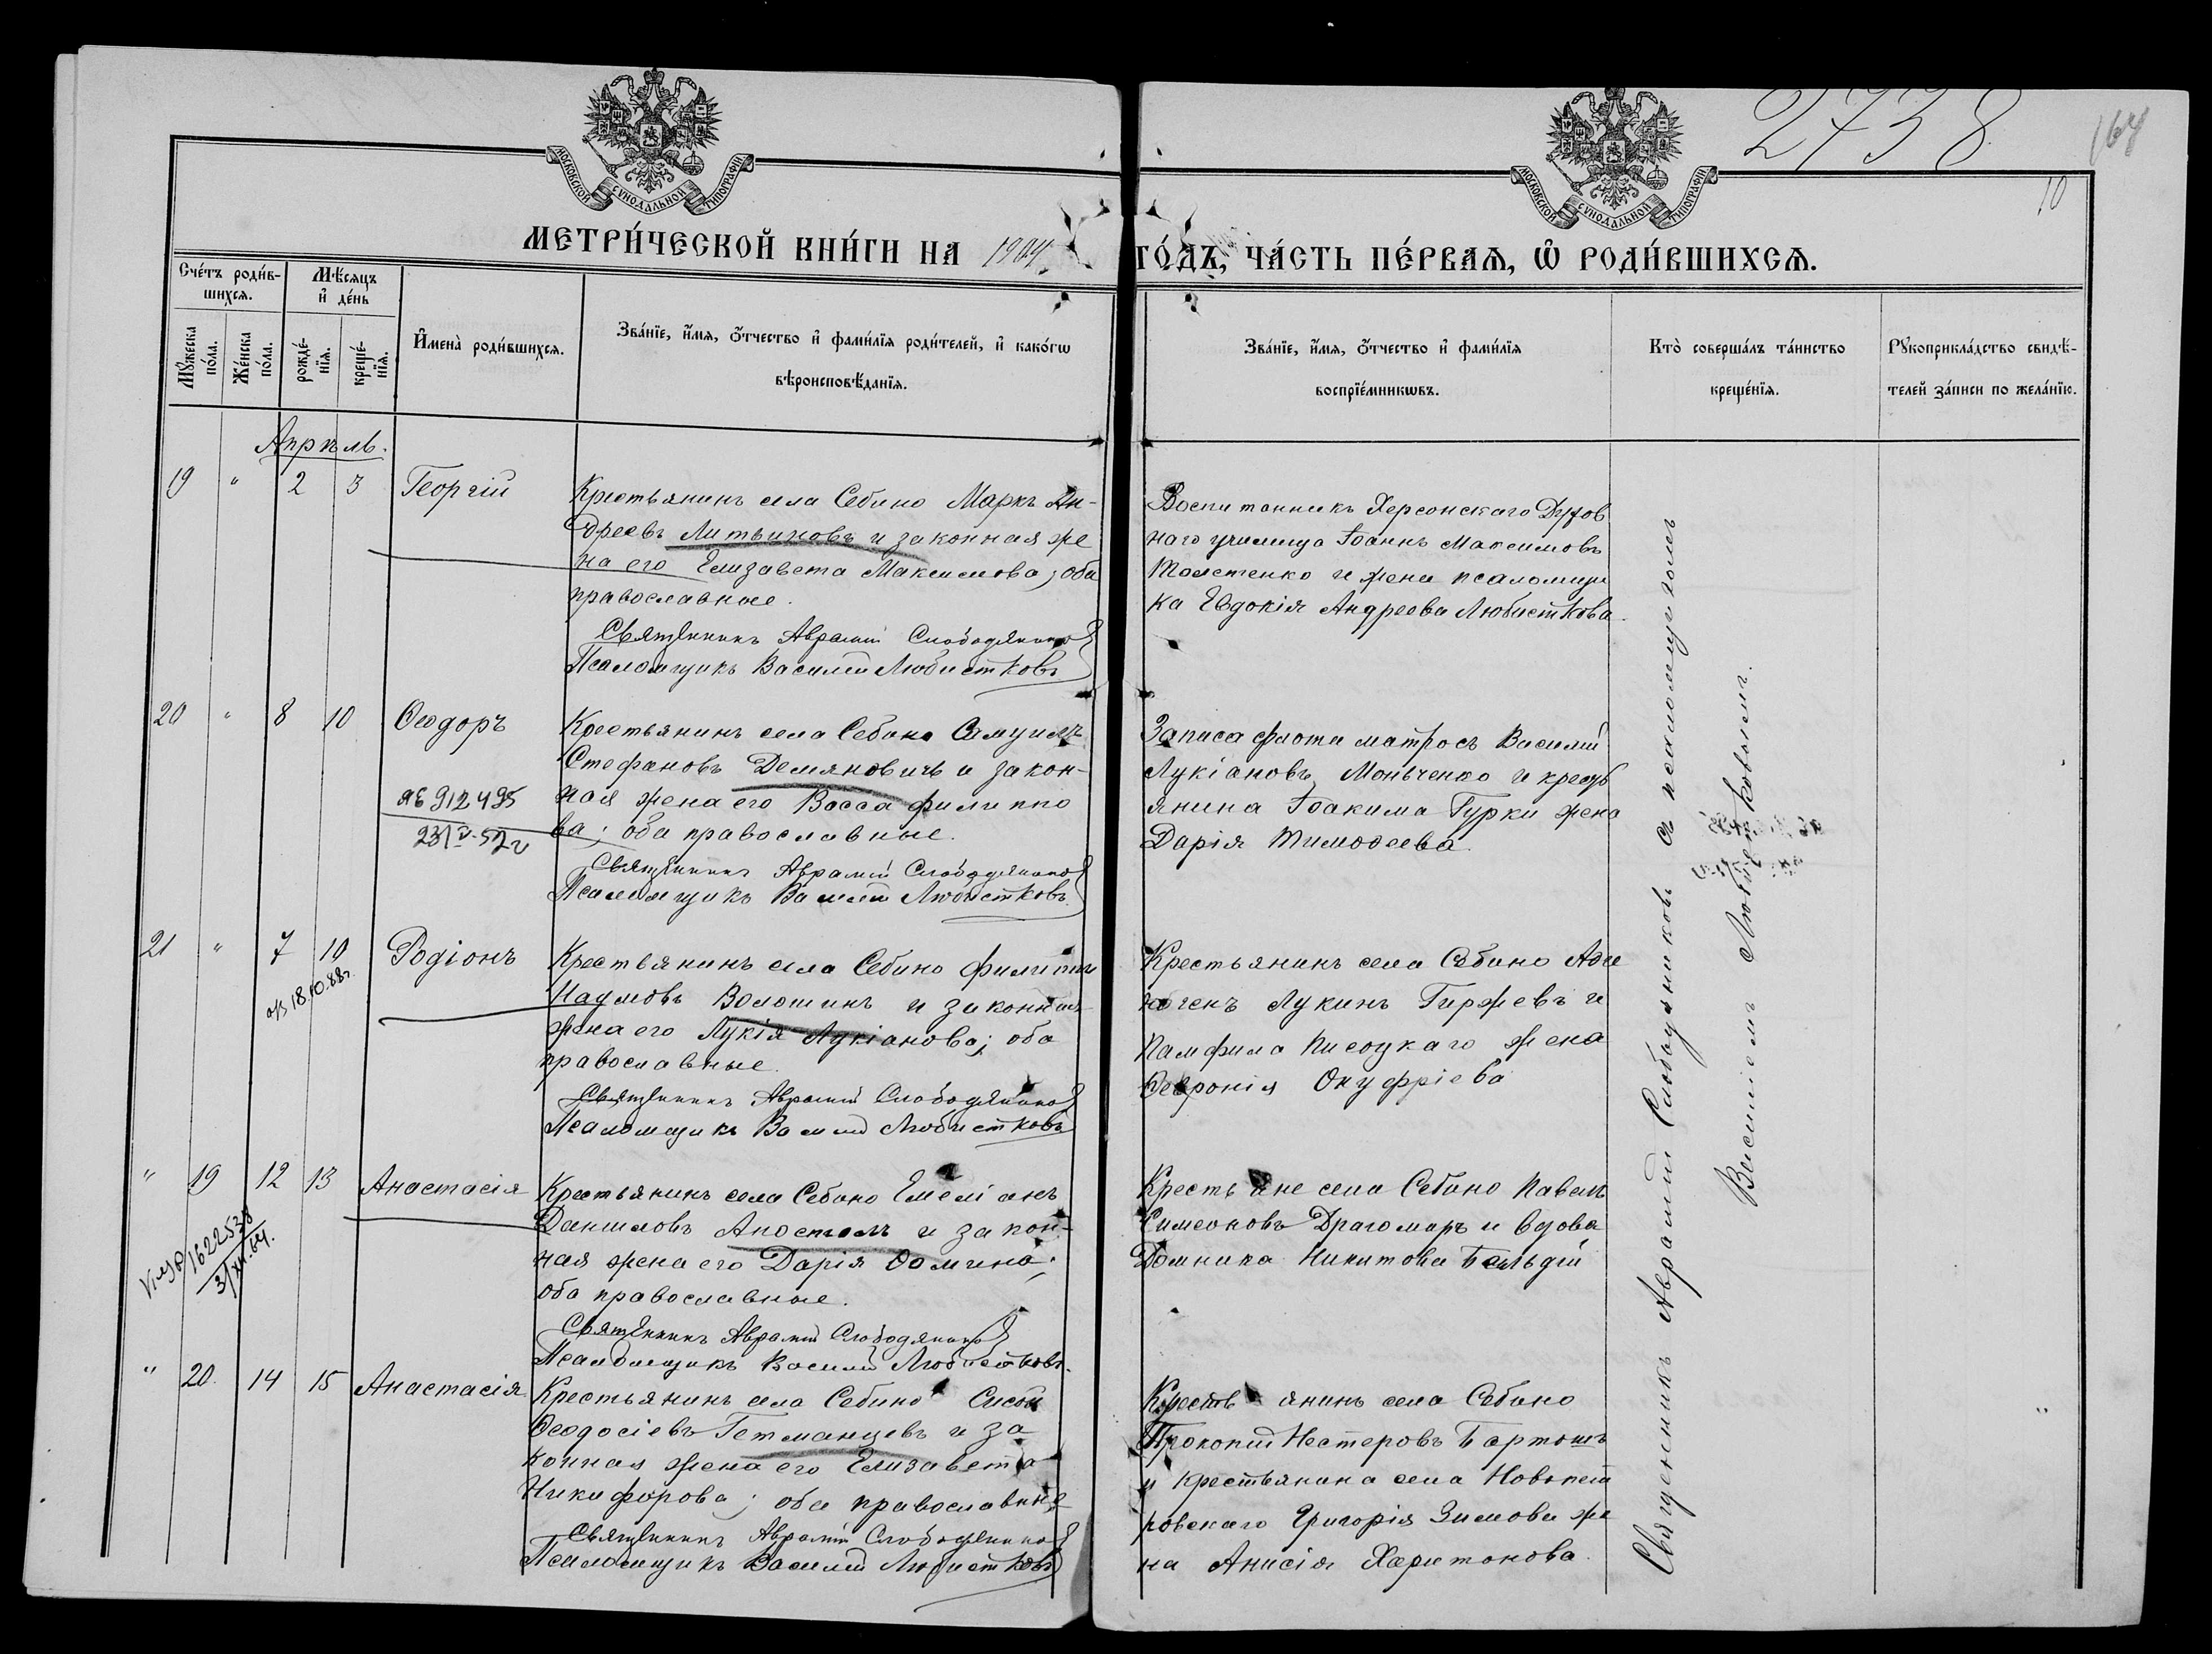 2738
164
10
МОСКОВСКОЙ СѴНОДАЛЬНОЙ ТИПОГРАФІИ
МОСКОВСКОЙ СѴНОДАЛЬНОЙ ТИПОГРАФІИ
МЕТРИ́ЧЕСКОЙ КНИ́ГИ НА 1904 ГО́ДЪ, ЧА́СТЬ ПЕ́РВАѦ, Ѽ РОДИ́ВШИХСѦ.
Сче́тъ роди́в-
шихсѧ.
Мѣ́сѧцъ
и҆ де́нь
Мꙋ́жеска
по́ла.
Же́нска
по́ла.
рожде́-
нїѧ.
креще́-
нїѧ.
И҆мена̀ роди́вшихсѧ.
Зва́нїе, и҆́мѧ, о҆́тчество и҆ фами́лїѧ роди́телей, и҆ како́гѡ
вѣроисповѣ́данїѧ.
Зва́нїе, и҆́мѧ, о҆́тчество и҆ фами́лїѧ
воспрїе́мникѡвъ.
Кто̀ соверша́лъ та́инство
креще́нїѧ.
Рꙋкоприкла́дство свидѣ́-
телей за́писи по жела́нїю.
Апрѣль.
19 " 2 3 Георгій
Крестьянинъ села Себино Маркъ Ан-
дреевъ Литвиновъ и законная же
на его Елизавета Максимова; оба
православные.
Священникъ Аврамій Слободяниковъ
Псаломщикъ Василій Любистковъ
Воспитанникъ Херсонскаго Духов
наго училища Іоаннъ Максимовъ
Толстенко и жена псаломщи
ка Евдокія Андреева Любисткова.
20 " 8 10 Ѳеодоръ
ЯБ 912495
23/V-52г
Крестьянинъ села Себино Самуилъ
Стефановъ Демяновичъ и закон-
ная жена его Васса Филиппо
ва; оба православные.
Священникъ Аврамій Слободяниковъ
Псаломщикъ Василій Любистковъ
Запаса флота матросъ Василій
Лукіановъ Моньченко и кресть
янина Іоакима Гурки жена
Дарія Тимоѳеева.
21 " 7 10 Родіонъ
18.10.88г.
Крестьянинъ села Себино Филиппъ
Наумовъ Волошинъ и законная
жена его Лукія Лукіанова; оба
православные.
Священникъ Аврамій Слободяниковъ
Псаломщикъ Василій Любистковъ
Крестьянинъ села Себино
Лукинъ Гиржевъ и
Памфила Писоцкаго жена
Ѳевронія Онуфріева
" 19 12 13 Анастасія
1622538
3/XII.64.
Крестьянинъ села Себино Емеліанъ
Даниловъ Апостолъ и закон-
ная жена его Дарія Ѳомина;
оба православные.
Священникъ Аврамій Слободяниковъ
Псаломщикъ Василій Любистковъ.
Крестьяне села Себино Павелъ
Симеоновъ Драгомиръ и вдова
Домника Никитова Бальдій
" 20 14 15 Анастасія
Крестьянинъ села Себино Сисой
Ѳеодосіевъ Гетманцевъ и за
конная жена его Елизавета
Никифорова; оба православные
Священникъ Аврамій Слободяниковъ
Псаломщикъ Василій Любистковъ
Крестьянинъ села Себино
Прокопій Нестеровъ Бартошъ
и крестьянина села Новопет
ровскаго Григорія Зимова же
на Анисія Харитонова.
Священникъ Аврамій Слободяниковъ съ псаломщикомъ
Василіемъ Любистковымъ.